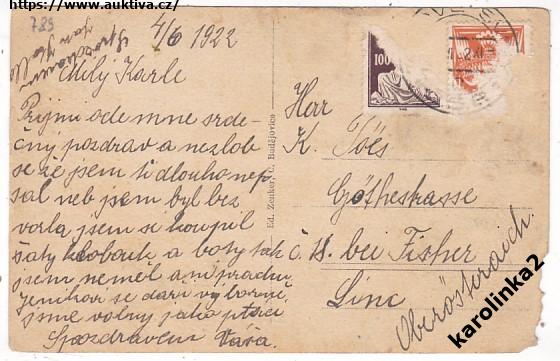 https://www.auktiva.cz/
789
4/6 1922
S pozdravem
Milý Karle
Přijmi ode mne srde-
čný pozdrav a nezlob
se že jsem ti dlouho nep
sal neb jsem byl bez
jsem se koupil
šaty klobouk a boty tak
jsem neměl ani
se daří výborně
jsme volny jako ptáci
S pozdravem Váša.
Ed. Zenker, Č. Budějovice
100
Herr
K.
Göthestrasse
č. 18. bei Fisher
Linc
Oberöstraich.
karolinka2